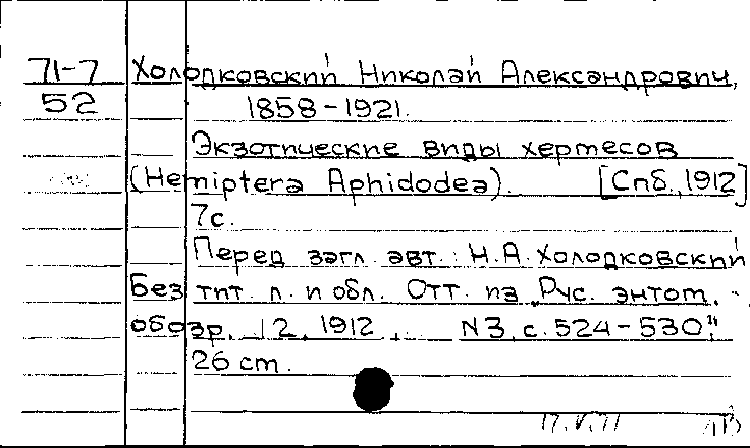 71-7 Холодковский Николай Александрович,
52 1858-1921.
Экзотические виды хермесов
(Hemiptera Aphidodea). [Спб., 1912]
7с.
Перед загл. авт.: Н.А. Холодковский
Без тит. л. и обл. Отт. из „Рус. энтом.
обозр. 12, 1912, N3, с. 524-530"
26 cm.
17.V.71